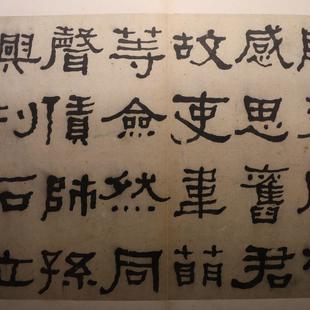 感思舊君
故吏韋萌
等僉然同
聲賃師孫
興刊石立